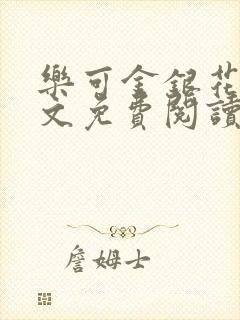 樂可金銀花
文免費閱讀
詹姆士